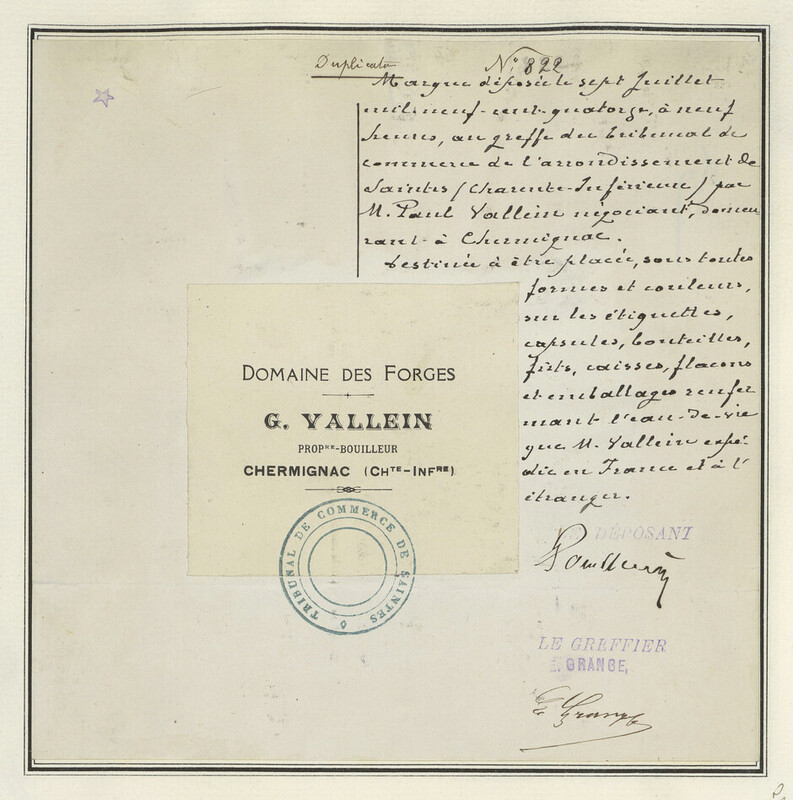 Duplicata
N° 822
Marque déposée le sept Juillet
mil neuf-cent-quatorze, à neuf
heures, au greffe du tribunal de
commerce de l'arrondissement de
Saintes (Charente-Inférieure) par
M. Paul Vallein négociant, demeu
rant à Chermignac.
Destinée à être placée, sous toutes
formes et couleurs,
sur les étiquettes,
capsules, bouteilles,
fûts, caisses, flacons
et emballages renfer
mant l'eau-de-vie
que M. Vallein expé-
die en France et à l'
étranger.
DOMAINE DES FORGES
G. VALLEIN
PROPRE-BOUILLEUR
CHERMIGNAC (CHTE-INFRE)
TRIBUNAL DE COMMERCE DE SAINTES
LE DÉPOSANT
LE GREFFIER
E. GRANGE,
E. Grange